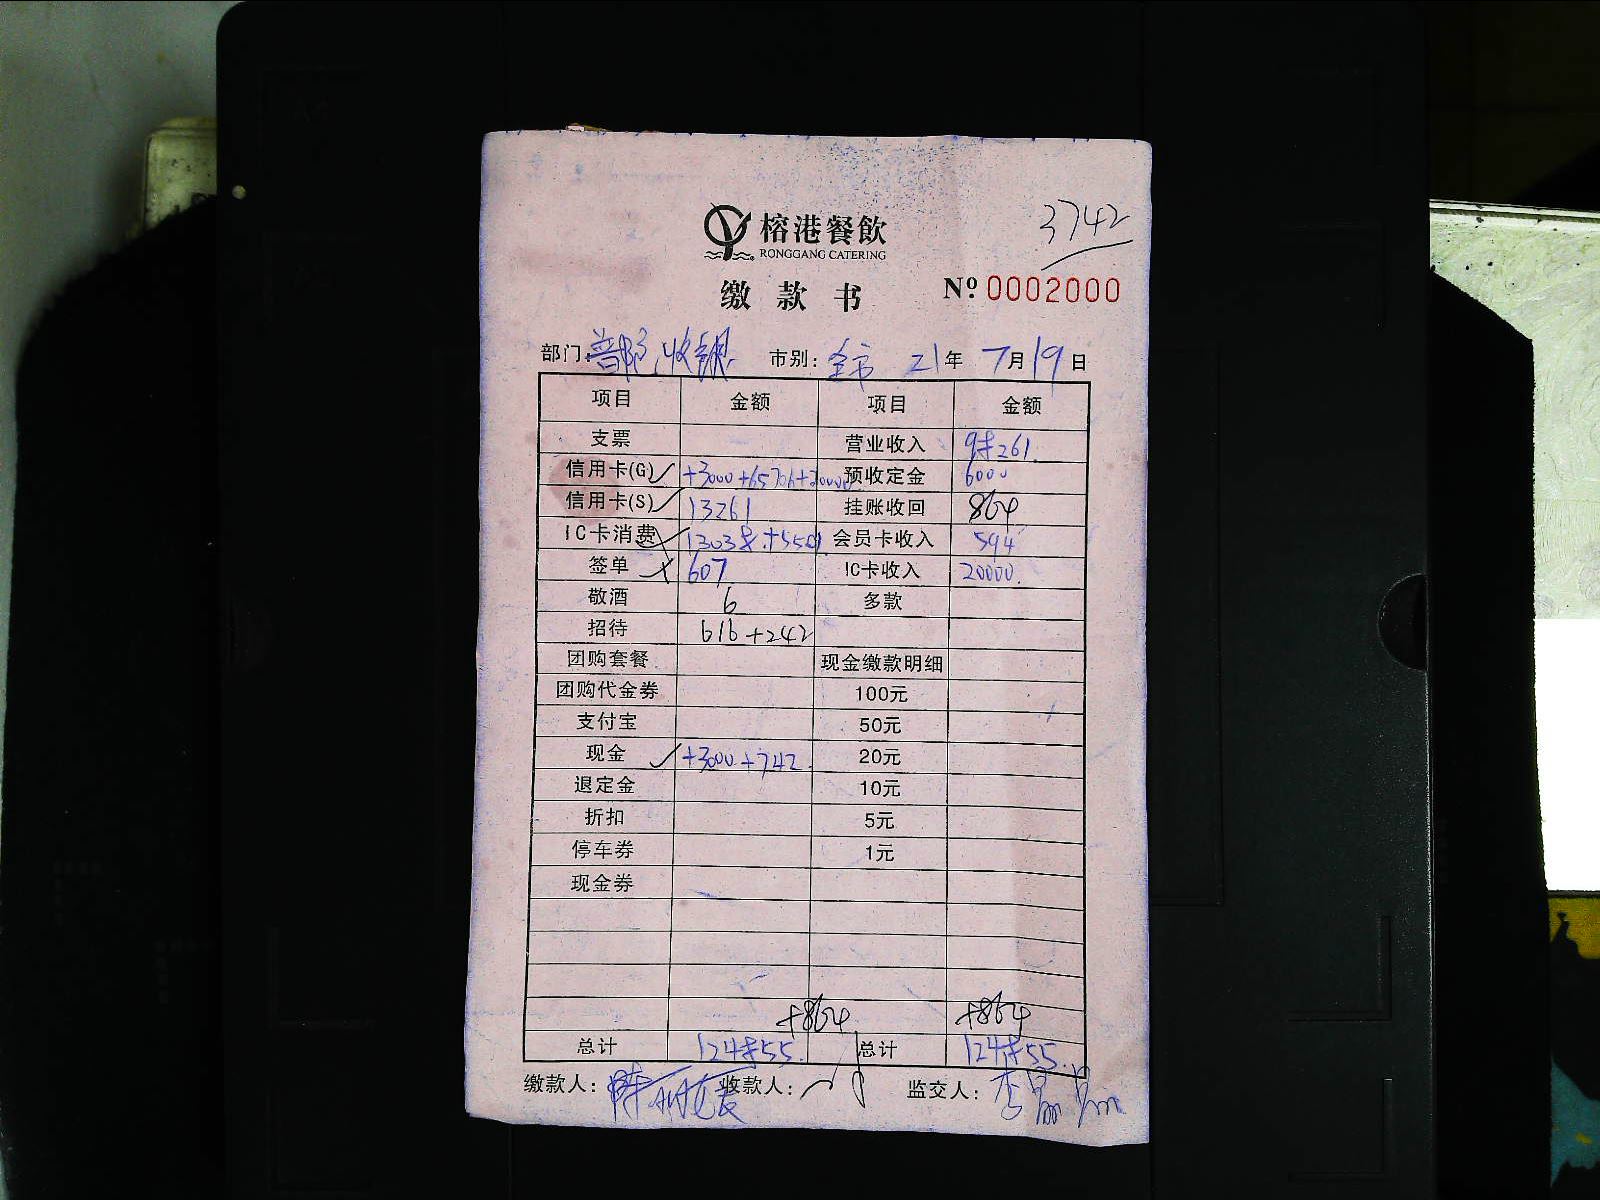 3742
榕港餐飲
RONGGANG CATERING
缴款书
Nº 0002000
部门: 收银 市别: 全市 21年 7月19日
项目 金额 项目 金额
支票 营业收入
信用卡(G) +3000+65706+20000 预收定金 6000
信用卡(S) 13261 挂账收回 864
IC卡消费 会员卡收入 594
签单 607 IC卡收入 20000.
敬酒 6 多款
招待 616+242
团购套餐 现金缴款明细
团购代金券 100元
支付宝 50元
现金 +3000+742. 20元
退定金 10元
折扣 5元
停车券 1元
现金券
+864 +864
总计 总计
缴款人: 收款人: 监交人: